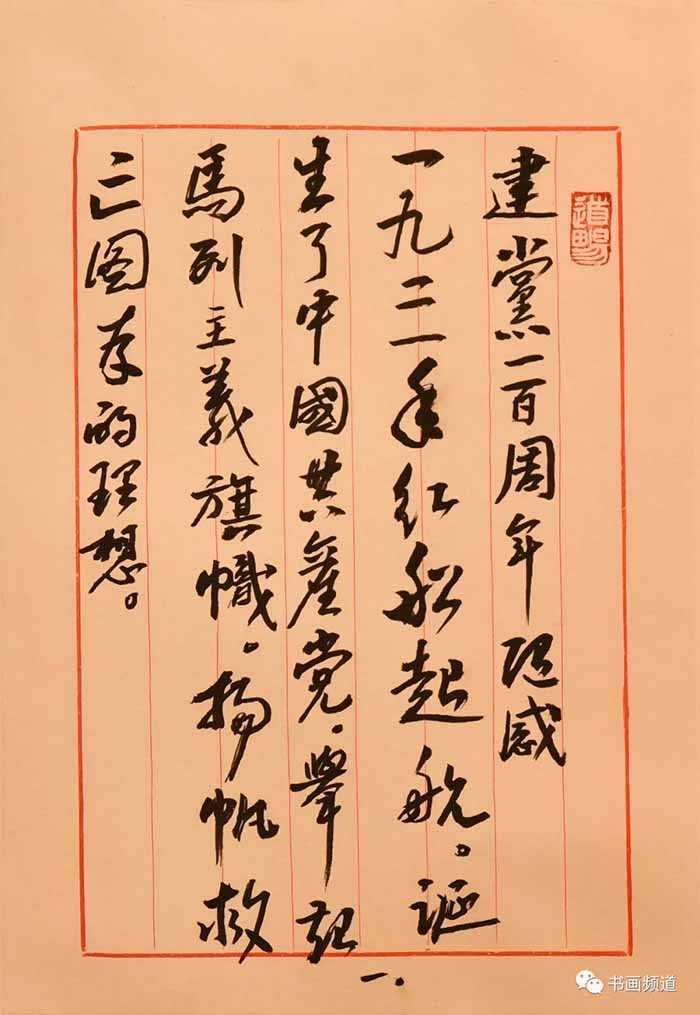 建黨一百周年随感
一九二一年红船起航。诞
生了中國共產党。舉起
馬列主義旗幟。揚帆救
亡图存的理想。
一.
道暢
书画频道